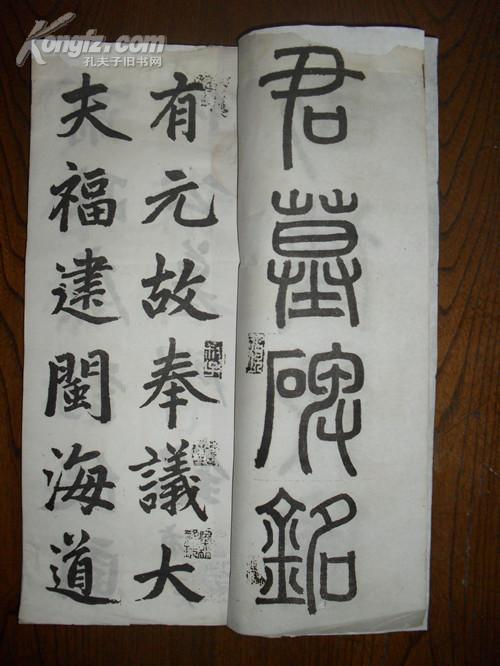 君墓碑銘
有元故奉議大
夫福建閩海道
Kongfz.com
孔夫子旧书网